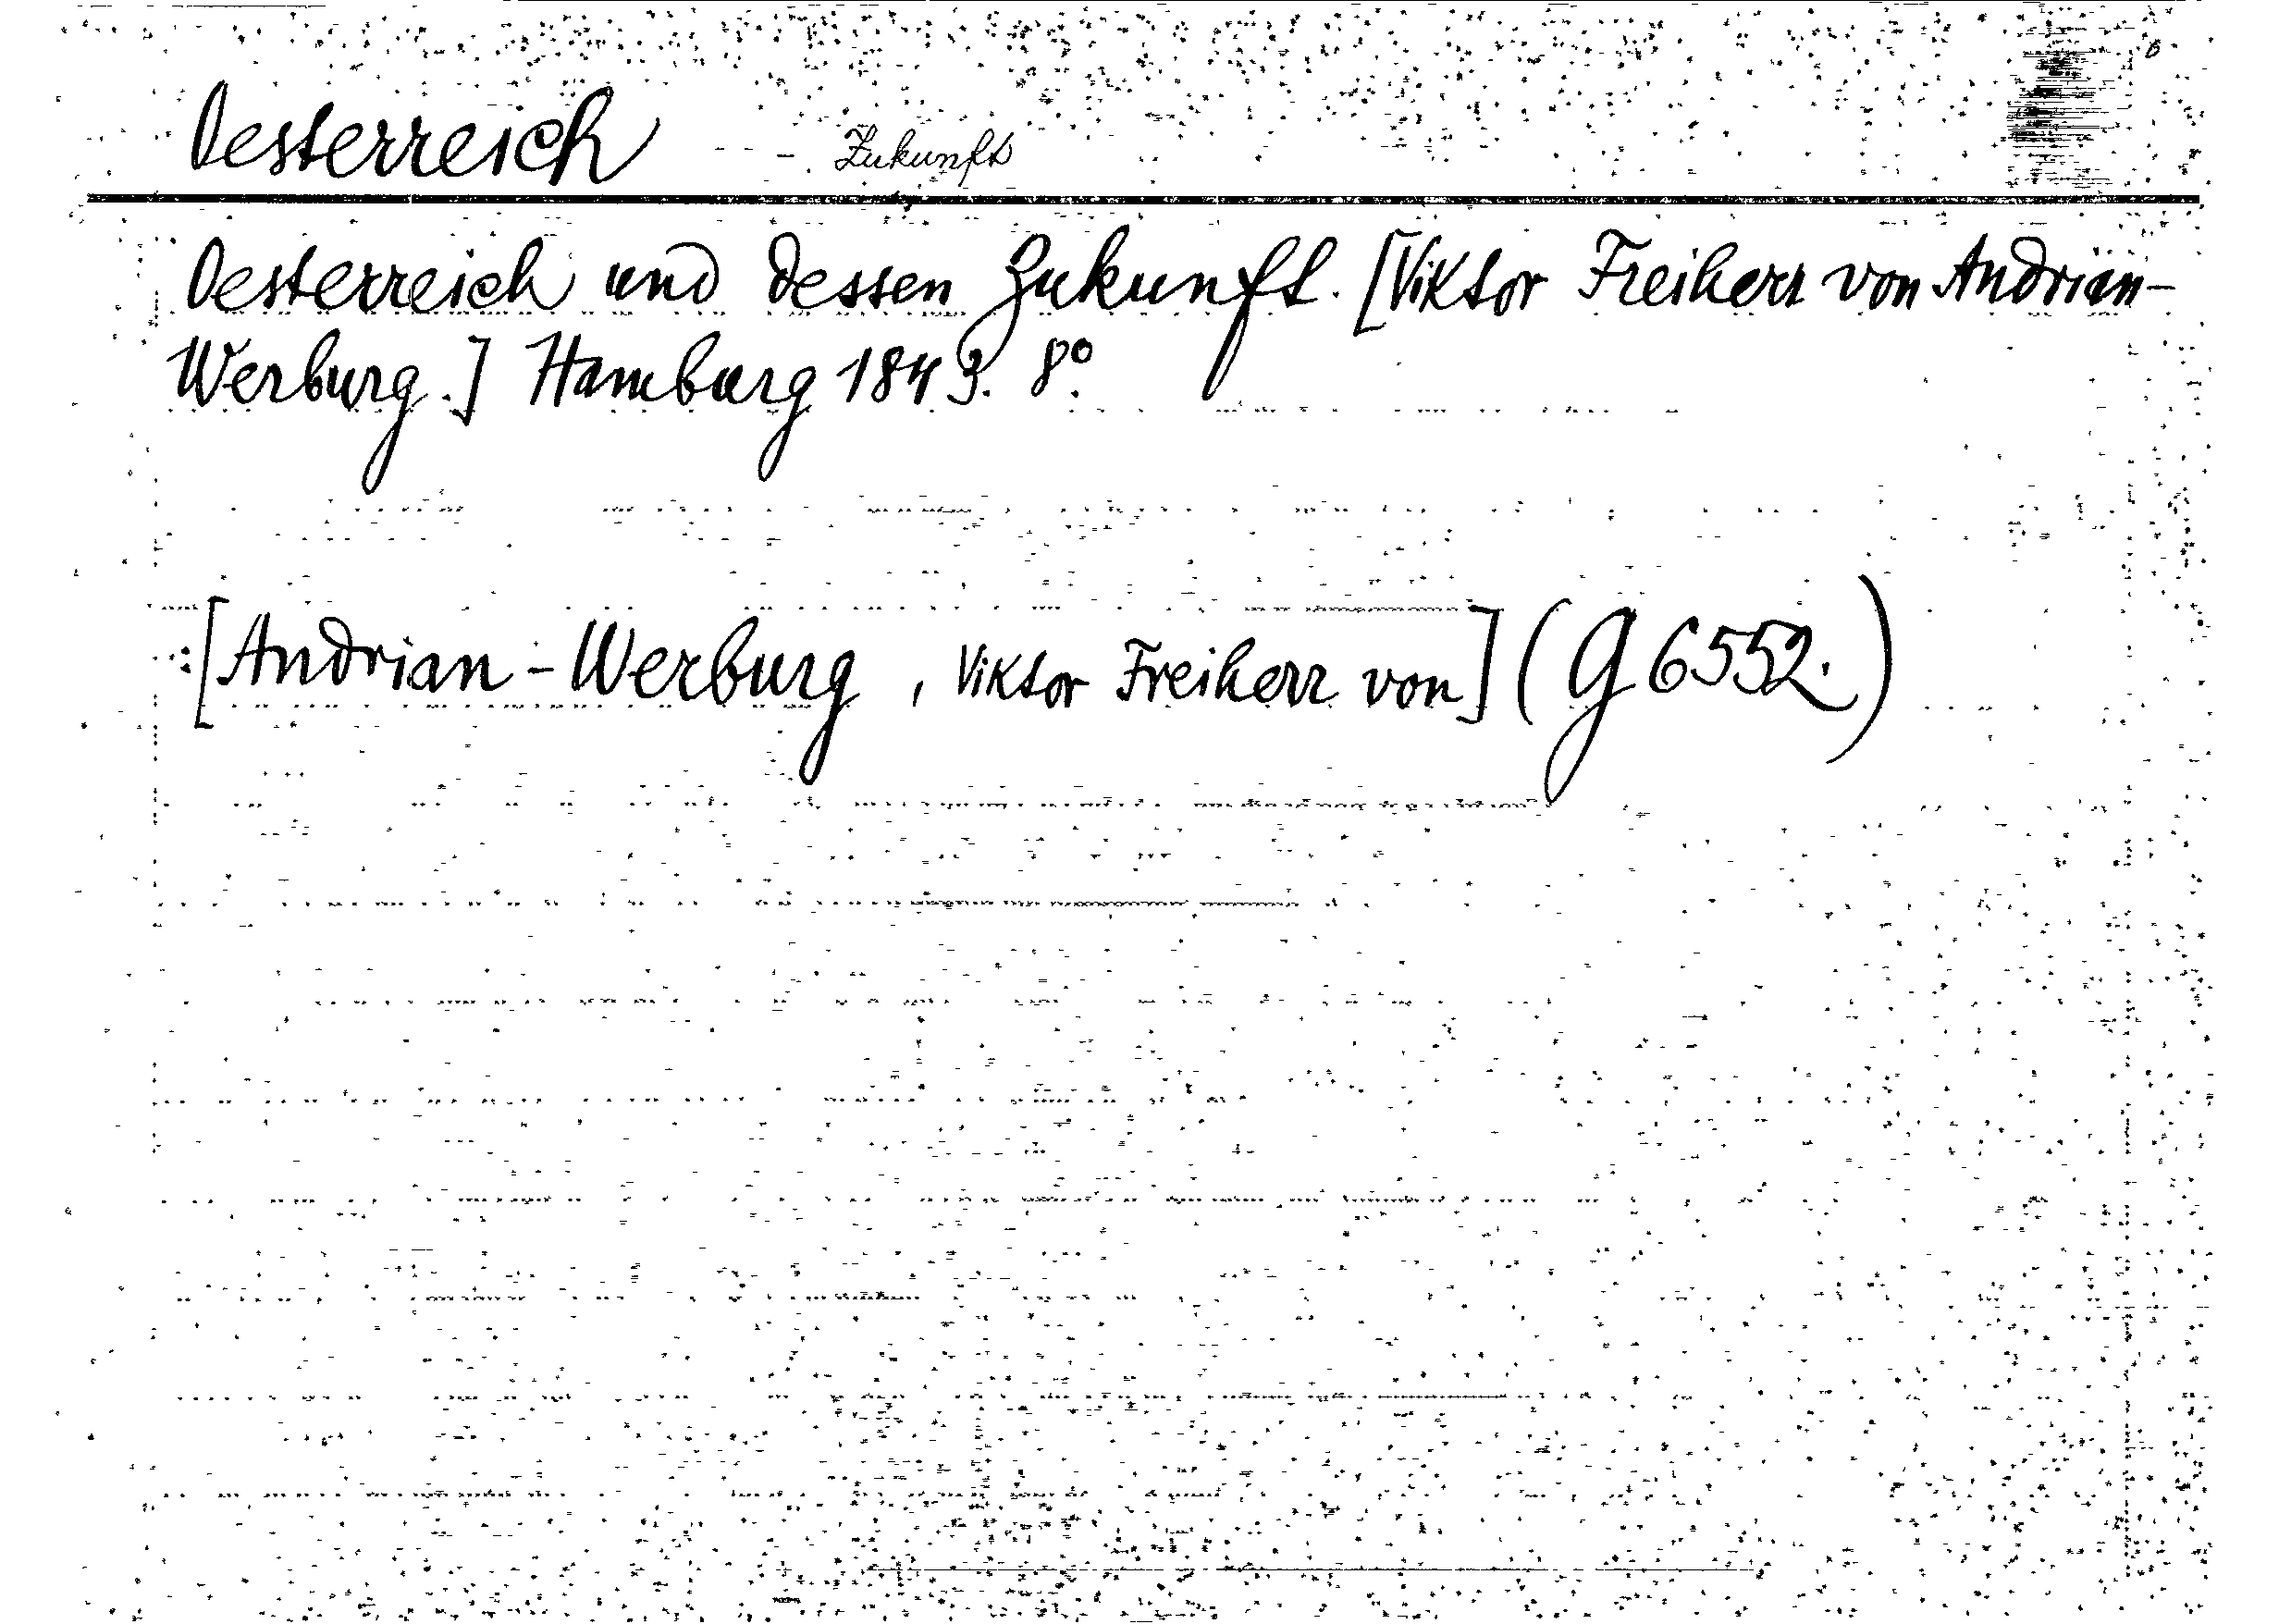 Oesterreich - - - . Zukunft
Oesterreich und dessen Zukunft. [Viktor Freiherr von Andrian-
Werburg.] Hamburg 1843. 8º.
[Andrian-Werburg, Viktor Freiherr von] (G 6552.)